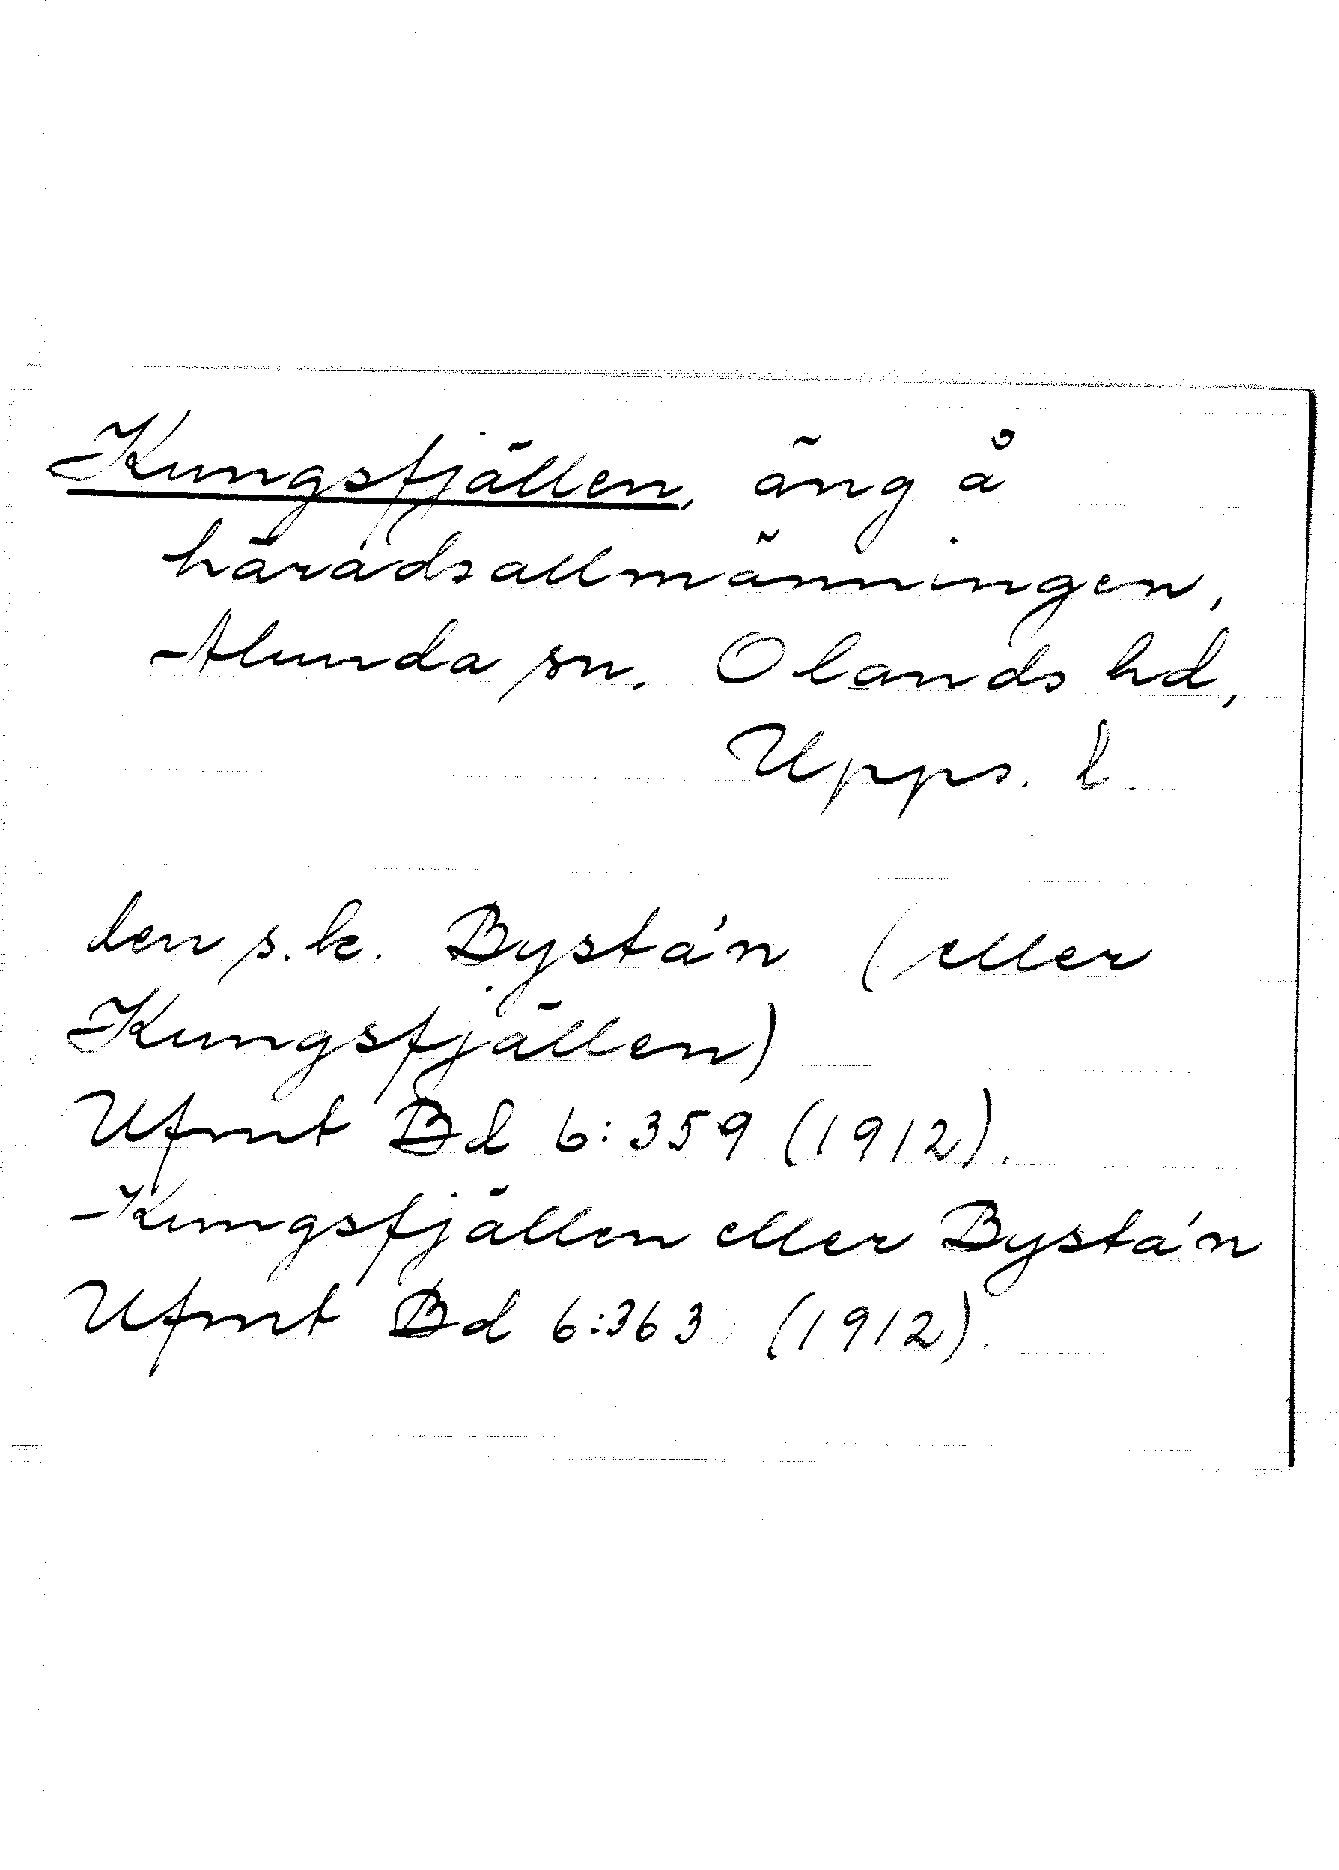 Kungsfjällen, äng å
häradsallmänningen,
Alunda sn. Olands hd,
Upps. l
den s.k. Bystá'n (eller
Kungsfjällen)
Ufmt Bd 6:359 (1912).
Kungsfjällen eller Bysta'n
Ufmt Bd 6:363 (1912).